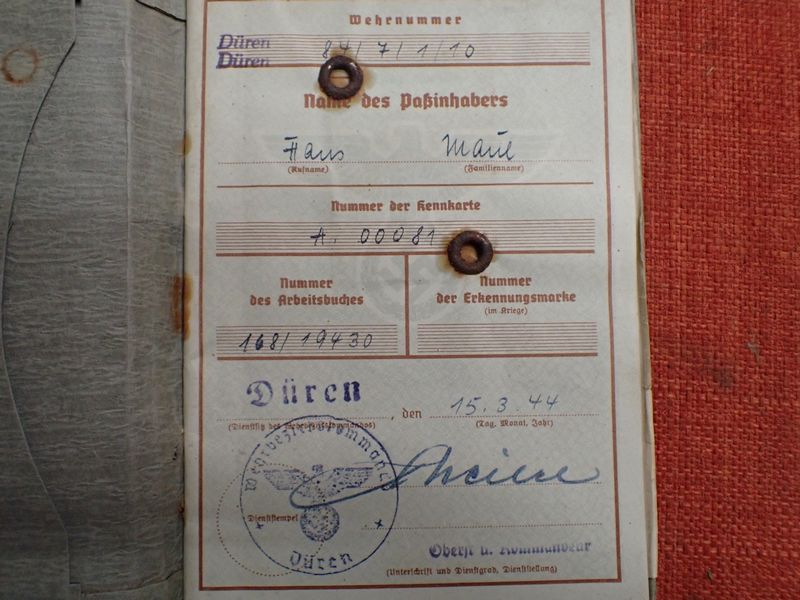 Wehrnummer
Düren
Düren
84/7/1/10
Name des Paßinhabers
Hans
(Rufname) (Familienname)
Nummer der Kennkarte
A. 00081
Nummer des Arbeitsbuches
168/19430
Nummer der Erkennungsmarke
(im Kriege)
Düren, den 15.3.44
(Dienstsitz des Wehrbezirkskommandos) (Tag, Monat, Jahr)
Wehrbezirkskommando
Düren
Dienststempel
Oberst u. Kommandeur
(Unterschrift und Dienstgrad, Dienststellung)